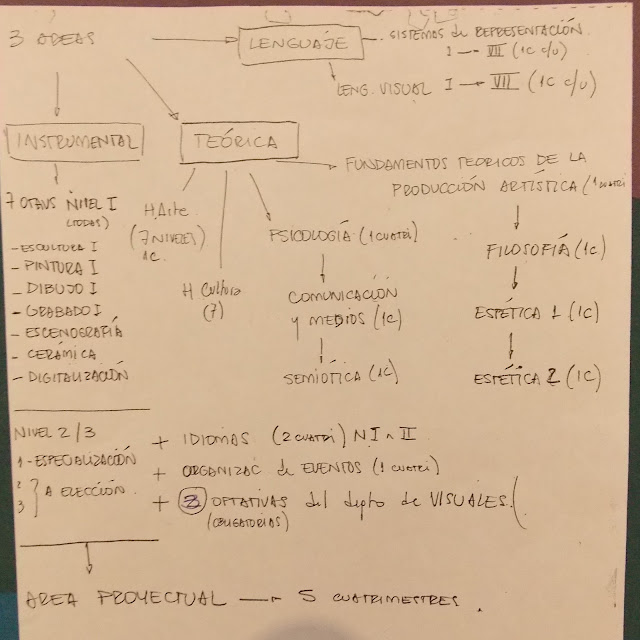 3 AREAS
LENGUAJE
SISTEMAS de REPRESENTACIÓN
I — VII (1C c/u)
LENG. VISUAL I → VII (1C c/u)
INSTRUMENTAL
TEÓRICA
FUNDAMENTOS TEORICOS DE LA
PRODUCCIÓN ARTÍSTICA (1 cuatri
7 OTAVS NIVEL I
(TODAS)
- ESCULTURA I
- PINTURA I
- DIBUJO I
- GRABADO I
- ESCENOGRAFÍA
- CERÁMICA
- DIGITALIZACIÓN
H. Arte
(7 NIVELES)
1C.
H Cultura
(7)
PSICOLOGÍA (1 cuatri)
COMUNICACIÓN
y MEDIOS (1C)
SEMIÓTICA (1C)
FILOSOFÍA (1C)
ESTÉTICA 1 (1C)
ESTÉTICA 2 (1C)
NIVEL 2/3
1 - ESPECIALIZACIÓN
2
3 } A ELECCIÓN.
+ IDIOMAS (2 cuatri) N I II
+ ORGANIZAC de EVENTOS (1 cuatri)
+ OPTATIVAS del depto de VISUALES.
(OBLIGATORIAS)
AREA PROYECTUAL → 5 CUATRIMESTRES.